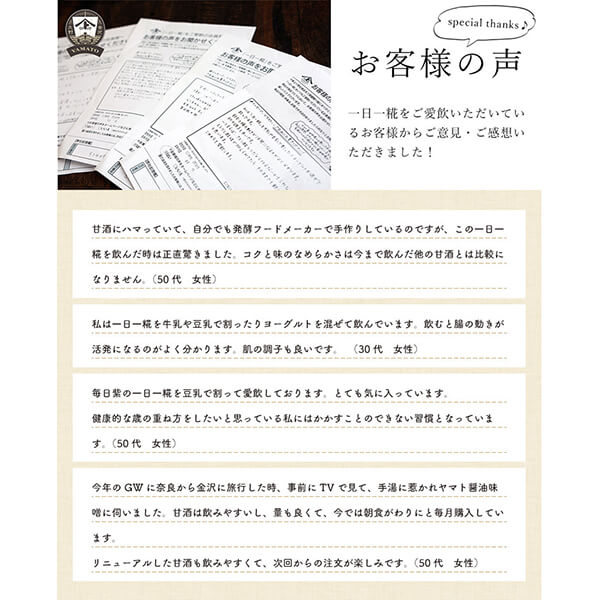 YAMATO
お客様の声をお聞かせく
お客様の声をお
special thanks♪
お客様の声
一日一糀をご愛飲いただいてい
るお客様からご意見・ご感想い
ただきました！
甘酒にハマっていて、自分でも発酵フードメーカーで手作りしているのですが、この一日一
糀を飲んだ時は正直驚きました。コクと味のなめらかさは今まで飲んだ他の甘酒とは比較に
なりません。（50代　女性）
私は一日一糀を牛乳や豆乳で割ったりヨーグルトを混ぜて飲んでいます。飲むと腸の動きが
活発になるのがよく分かります。肌の調子も良いです。　（30代　女性）
毎日紫の一日一糀を豆乳で割って愛飲しております。とても気に入っています。
健康的な歳の重ね方をしたいと思っている私にはかかすことのできない習慣となっていま
す。（50代　女性）
今年のGWに奈良から金沢に旅行した時、事前にTVで見て、手湯に惹かれヤマト醤油味
噌に伺いました。甘酒は飲みやすいし、量も良くて、今では朝食がわりにと毎月購入してい
ます。
リニューアルした甘酒も飲みやすくて、次回からの注文が楽しみです。（50代　女性）